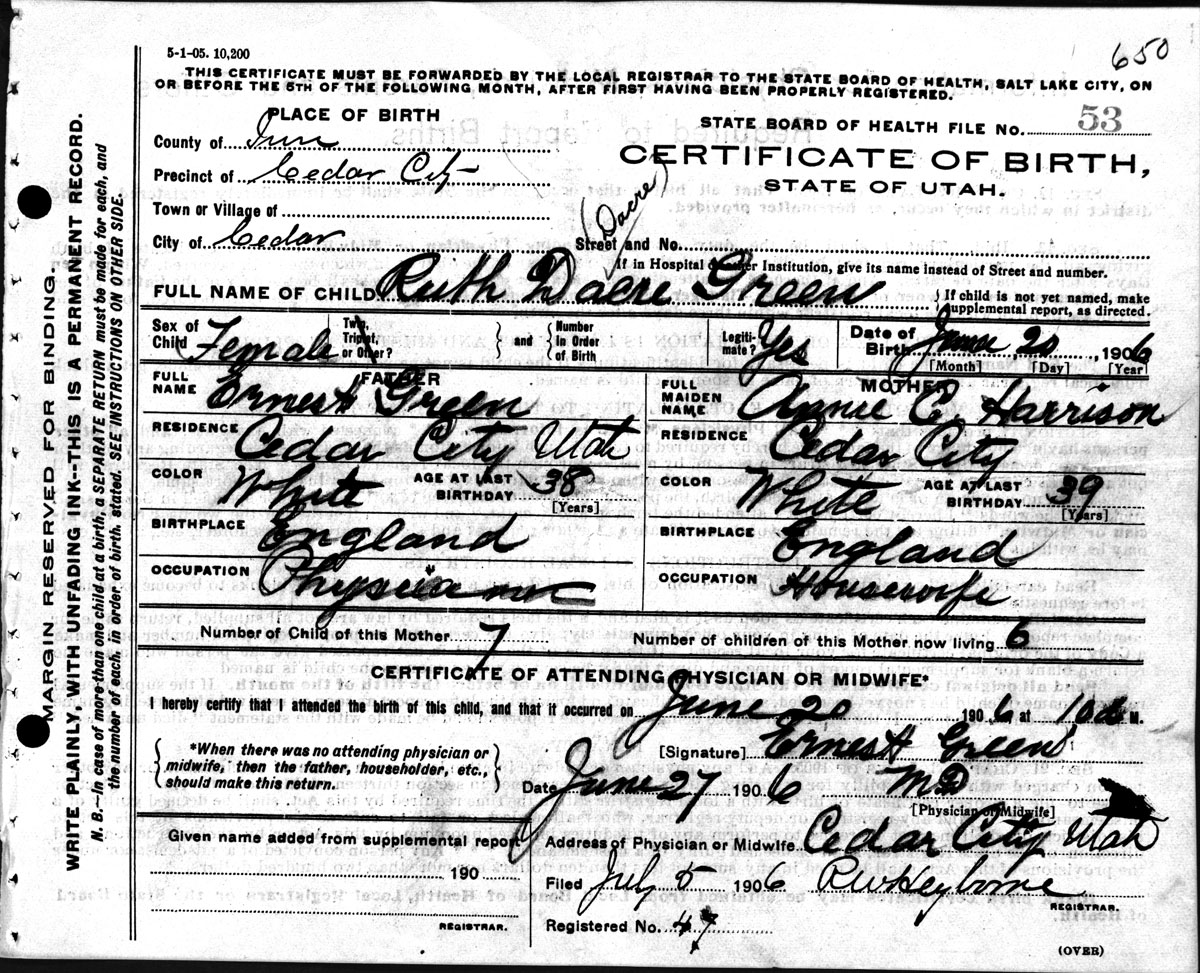 5-1-05. 10,200
650
THIS CERTIFICATE MUST BE FORWARDED BY THE LOCAL REGISTRAR TO THE STATE BOARD OF HEALTH, SALT LAKE CITY, ON
OR BEFORE THE 5TH OF THE FOLLOWING MONTH, AFTER FIRST HAVING BEEN PROPERLY REGISTERED.
PLACE OF BIRTH
STATE BOARD OF HEALTH FILE No. 53
County of Iron
CERTIFICATE OF BIRTH,
Precinct of Cedar City
STATE OF UTAH.
Town or Village of
(Dacre)
City of Cedar
Street and No.
If in Hospital or other Institution, give its name instead of Street and number.
FULL NAME OF CHILD Ruth Dacre Green
{ If child is not yet named, make supplemental report, as directed.
Sex of Child Female
Twin, Triplet, or Other?
} and {
Number in Order of Birth
Legiti- mate? Yes
Date of Birth June 20, 1906
[Month] [Day] [Year]
FATHER
FULL NAME Ernest Green
RESIDENCE Cedar City Utah
COLOR White
AGE AT LAST BIRTHDAY 38
[Years]
BIRTHPLACE England
OCCUPATION Physician
MOTHER
FULL MAIDEN NAME Annie E Harrison
RESIDENCE Cedar City
COLOR White
AGE AT LAST BIRTHDAY 39
[Years]
BIRTHPLACE England
OCCUPATION Housewife
Number of Child of this Mother 7
Number of children of this Mother now living 6
CERTIFICATE OF ATTENDING PHYSICIAN OR MIDWIFE*
I hereby certify that I attended the birth of this child, and that it occurred on June 20 1906 at 10 a M.
{ *When there was no attending physician or midwife, then the father, householder, etc., should make this return. }
[Signature] Ernest Green
Date June 27 1906 MD
[Physician or Midwife]
Given name added from supplemental report
Address of Physician or Midwife Cedar City Utah
190
Filed July 5 1906 R W Heyborne
REGISTRAR.
REGISTRAR.
Registered No. 47
(OVER)
MARGIN RESERVED FOR BINDING.
WRITE PLAINLY, WITH UNFADING INK--THIS IS A PERMANENT RECORD.
N. B.--In case of more than one child at a birth, a SEPARATE RETURN must be made for each, and
the number of each, in order of birth, stated. SEE INSTRUCTIONS ON OTHER SIDE.